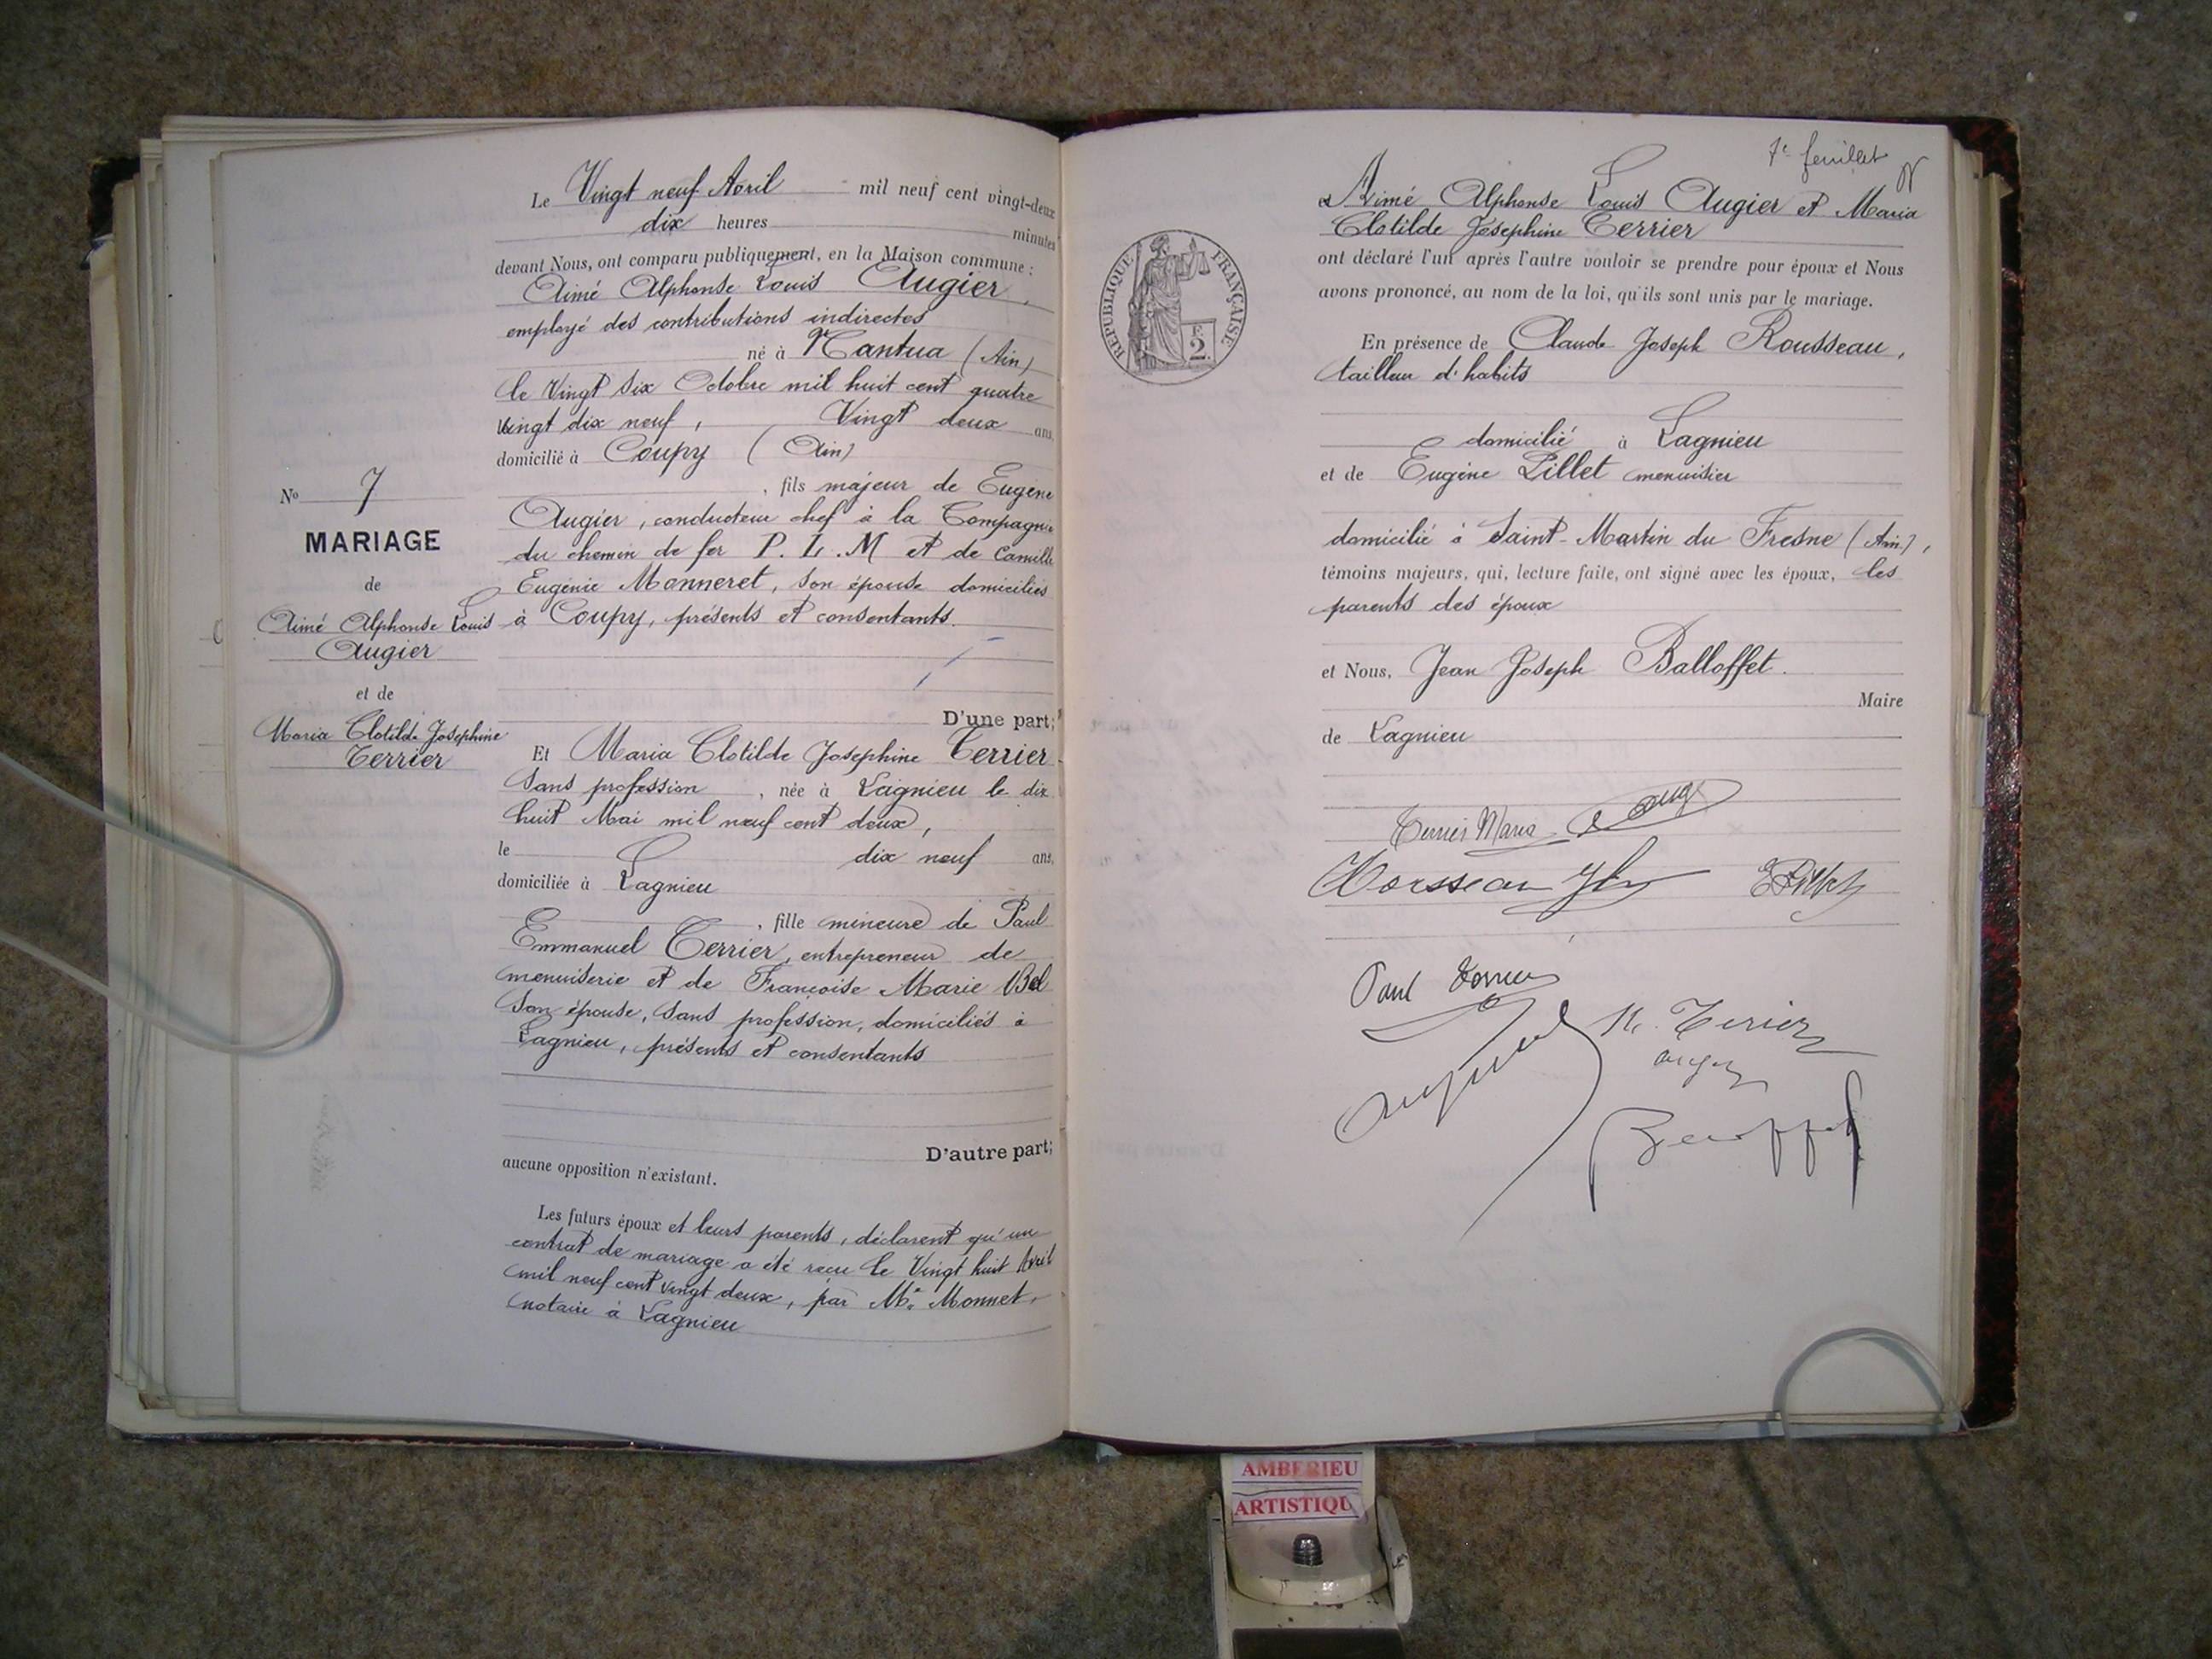 Le Vingt neuf Avril mil neuf cent vingt-deux
dix heures minutes
devant Nous, ont comparu publiquement, en la Maison commune :
Aimé Alphonse Louis Augier,
employé des contributions indirectes
né à Nantua (Ain)
le Vingt six Octobre mil huit cent quatre
vingt dix neuf, Vingt deux ans,
domicilié à Coupy (Ain)
, fils majeur de Eugène
Augier, conducteur chef à la Compagnie
du chemin de fer P. L. M et de Camille
Eugénie Monneret, son épouse domiciliés
à Coupy, présents et consentants.
D'une part;
No 7
MARIAGE
de
Aimé Alphonse Louis
Augier
et de
Maria Clotilde Josephine
Terrier
Et Maria Clotilde Josephine Terrier
Sans profession, née à Lagnieu le dix
huit Mai mil neuf cent deux,
le dix neuf ans,
domiciliée à Lagnieu
, fille mineure de Paul
Emmanuel Terrier, entrepreneur de
menuiserie et de Françoise Marie Bel
Son épouse, Sans profession, domiciliés à
Lagnieu, présents et consentants
D'autre part;
aucune opposition n'existant.
Les futurs époux et leurs parents, déclarent qu'un
contrat de mariage a été recu le Vingt huit Avril
mil neuf cent vingt deux, par Me Monnet,
notaire à Lagnieu
7e feuillet
Aimé Alphonse Louis Augier et Maria
Clotilde Josephine Terrier
ont déclaré l'un après l'autre vouloir se prendre pour époux et Nous
avons prononcé, au nom de la loi, qu'ils sont unis par le mariage.
RÉPUBLIQUE FRANÇAISE
F.
2.
En présence de Claude Joseph Rousseau,
tailleur d'habits
domicilié à Lagnieu
et de Eugène Pillet menuisier
domicilié à Saint-Martin du Fresne (Ain),
témoins majeurs, qui, lecture faite, ont signé avec les époux, les
parents des époux
et Nous, Jean Joseph Balloffet.
Maire
de Lagnieu
Terrier Maria
Paul Terrier
AMBERIEU
ARTISTIQU